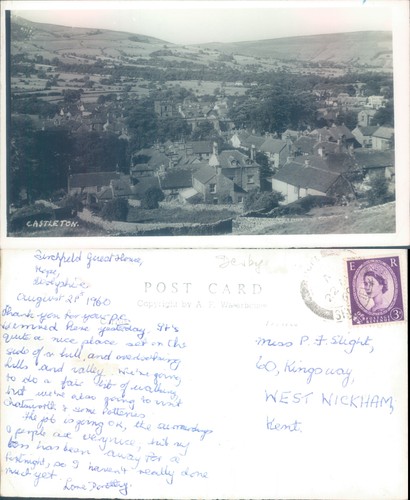 CASTLETON.
Birchfield Guest House,
Hope,
Derbyshire
August 21st 1960
Derby
POST CARD
Copyright by A. P.
E R
3D
Thank you for your p.c.
We arrived here yesterday. It's
quite a nice place set on the
side of a hill and overlooking
hills and valley. We're going
to do a fair bit of walking,
but we're also going to visit
Chatsworth & some potteries
The job is going OK, the surroundings
& people are very nice, but my
boss has been away for a
fortnight, so I haven't really done
much yet.
Love Dorothy.
Miss P. J. Slight,
60, Kingsway,
WEST WICKHAM,
Kent.